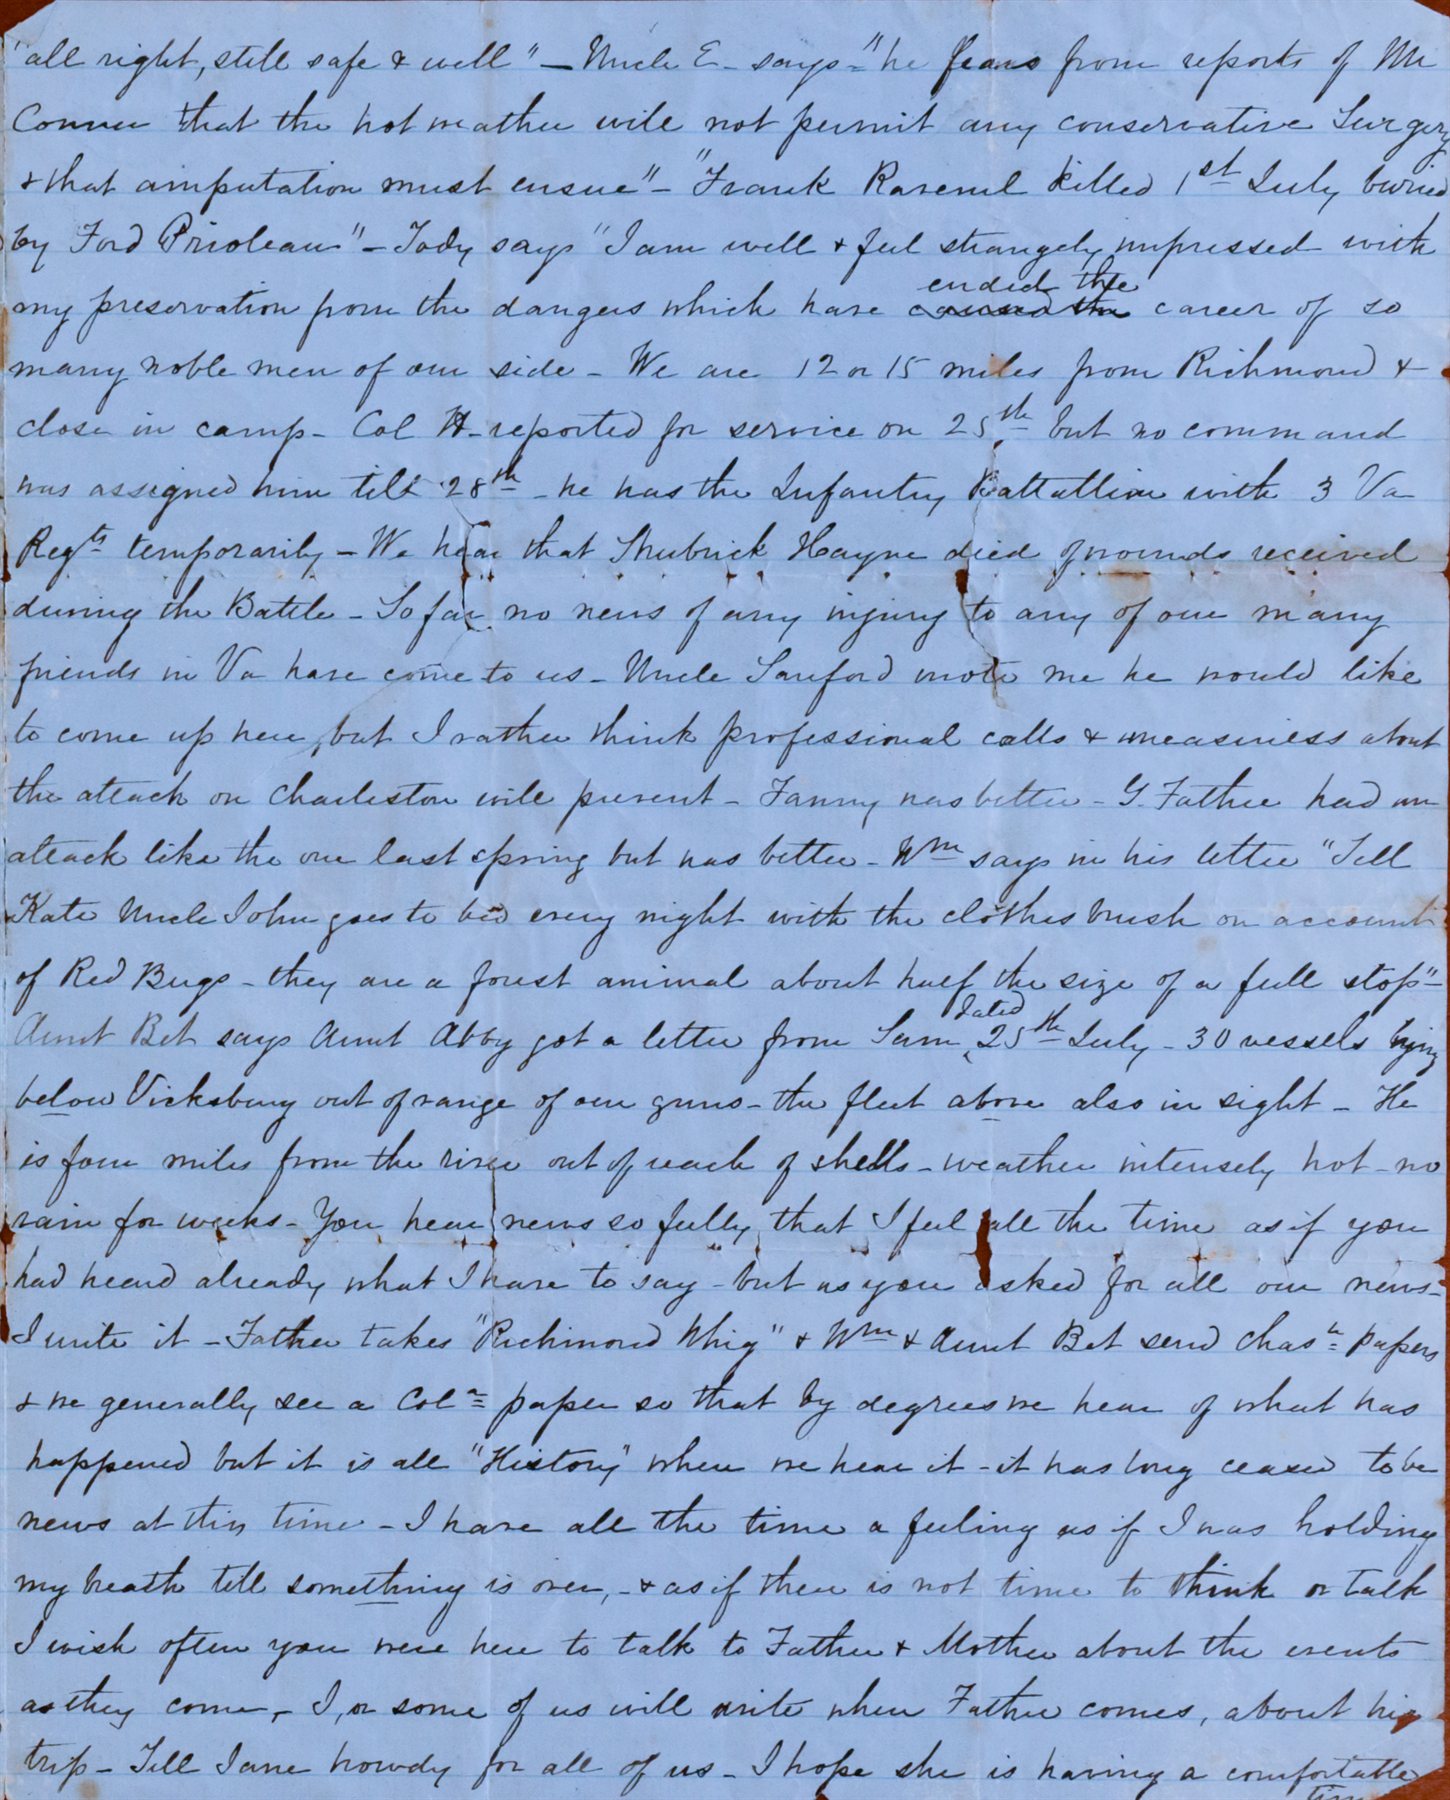 "all right, still safe & well" - Uncle E - says - "he fears from reports of Mr
Conner that the hot weather will not permit any conservative Surgery
& that amputation must ensue" - "Frank Ravenel killed 1st July buried
by Ford Prioleau" - Tody says "I am well & feel strangely impressed with
ended the
my preservation from the dangers which have caused the career of so
many noble men of our side - We are 12 or 15 miles from Richmond &
close in camp - Col H - reported for service on 25th but no command
was assigned him till 28th - he has the Infantry Battallion with 3 Va
Regts temporarily - We hear that Shubrick Hayne died of wounds received
during the Battle - So far no news of any injury to any of our many
friends in Va have come to us - Uncle Sanford wrote me he would like
to come up here, but I rather think professional calls & uneasiness about
the attack on Charleston will prevent - Fanny was better - G. Father had an
attack like the one last spring but was better - Wm says in his letter "Tell
Kate Uncle John goes to bed every night with the clothes brush on account
of Red Bugs - they are a forest animal about half the size of a full stop" -
dated
Aunt Bet says Aunt Abby got a letter from Sam 25th July - 30 vessels lying
below Vicksburg out of range of our guns - the fleet above also in sight - He
is four miles from the river out of reach of shells - weather intensely hot - no
rain for weeks - You hear news so fully, that I feel all the time as if you
had heard already what I have to say - but as you asked for all our news -
I write it - Father takes "Richmond Whig" & Wm & Aunt Bet send Chasn papers
& we generally see a Cola paper so that by degrees we hear of what has
happened but it is all "History" when we hear it - it has long ceased to be
news at this time - I have all the time a feeling as if I was holding
my breath till something is over, - & as if there is not time to think or talk
I wish often you were here to talk to Father & Mother about the events
as they come, - I, or some of us will write when Father comes, about his
trip - Tell Jane howdy for all of us - I hope she is having a comfortable
time